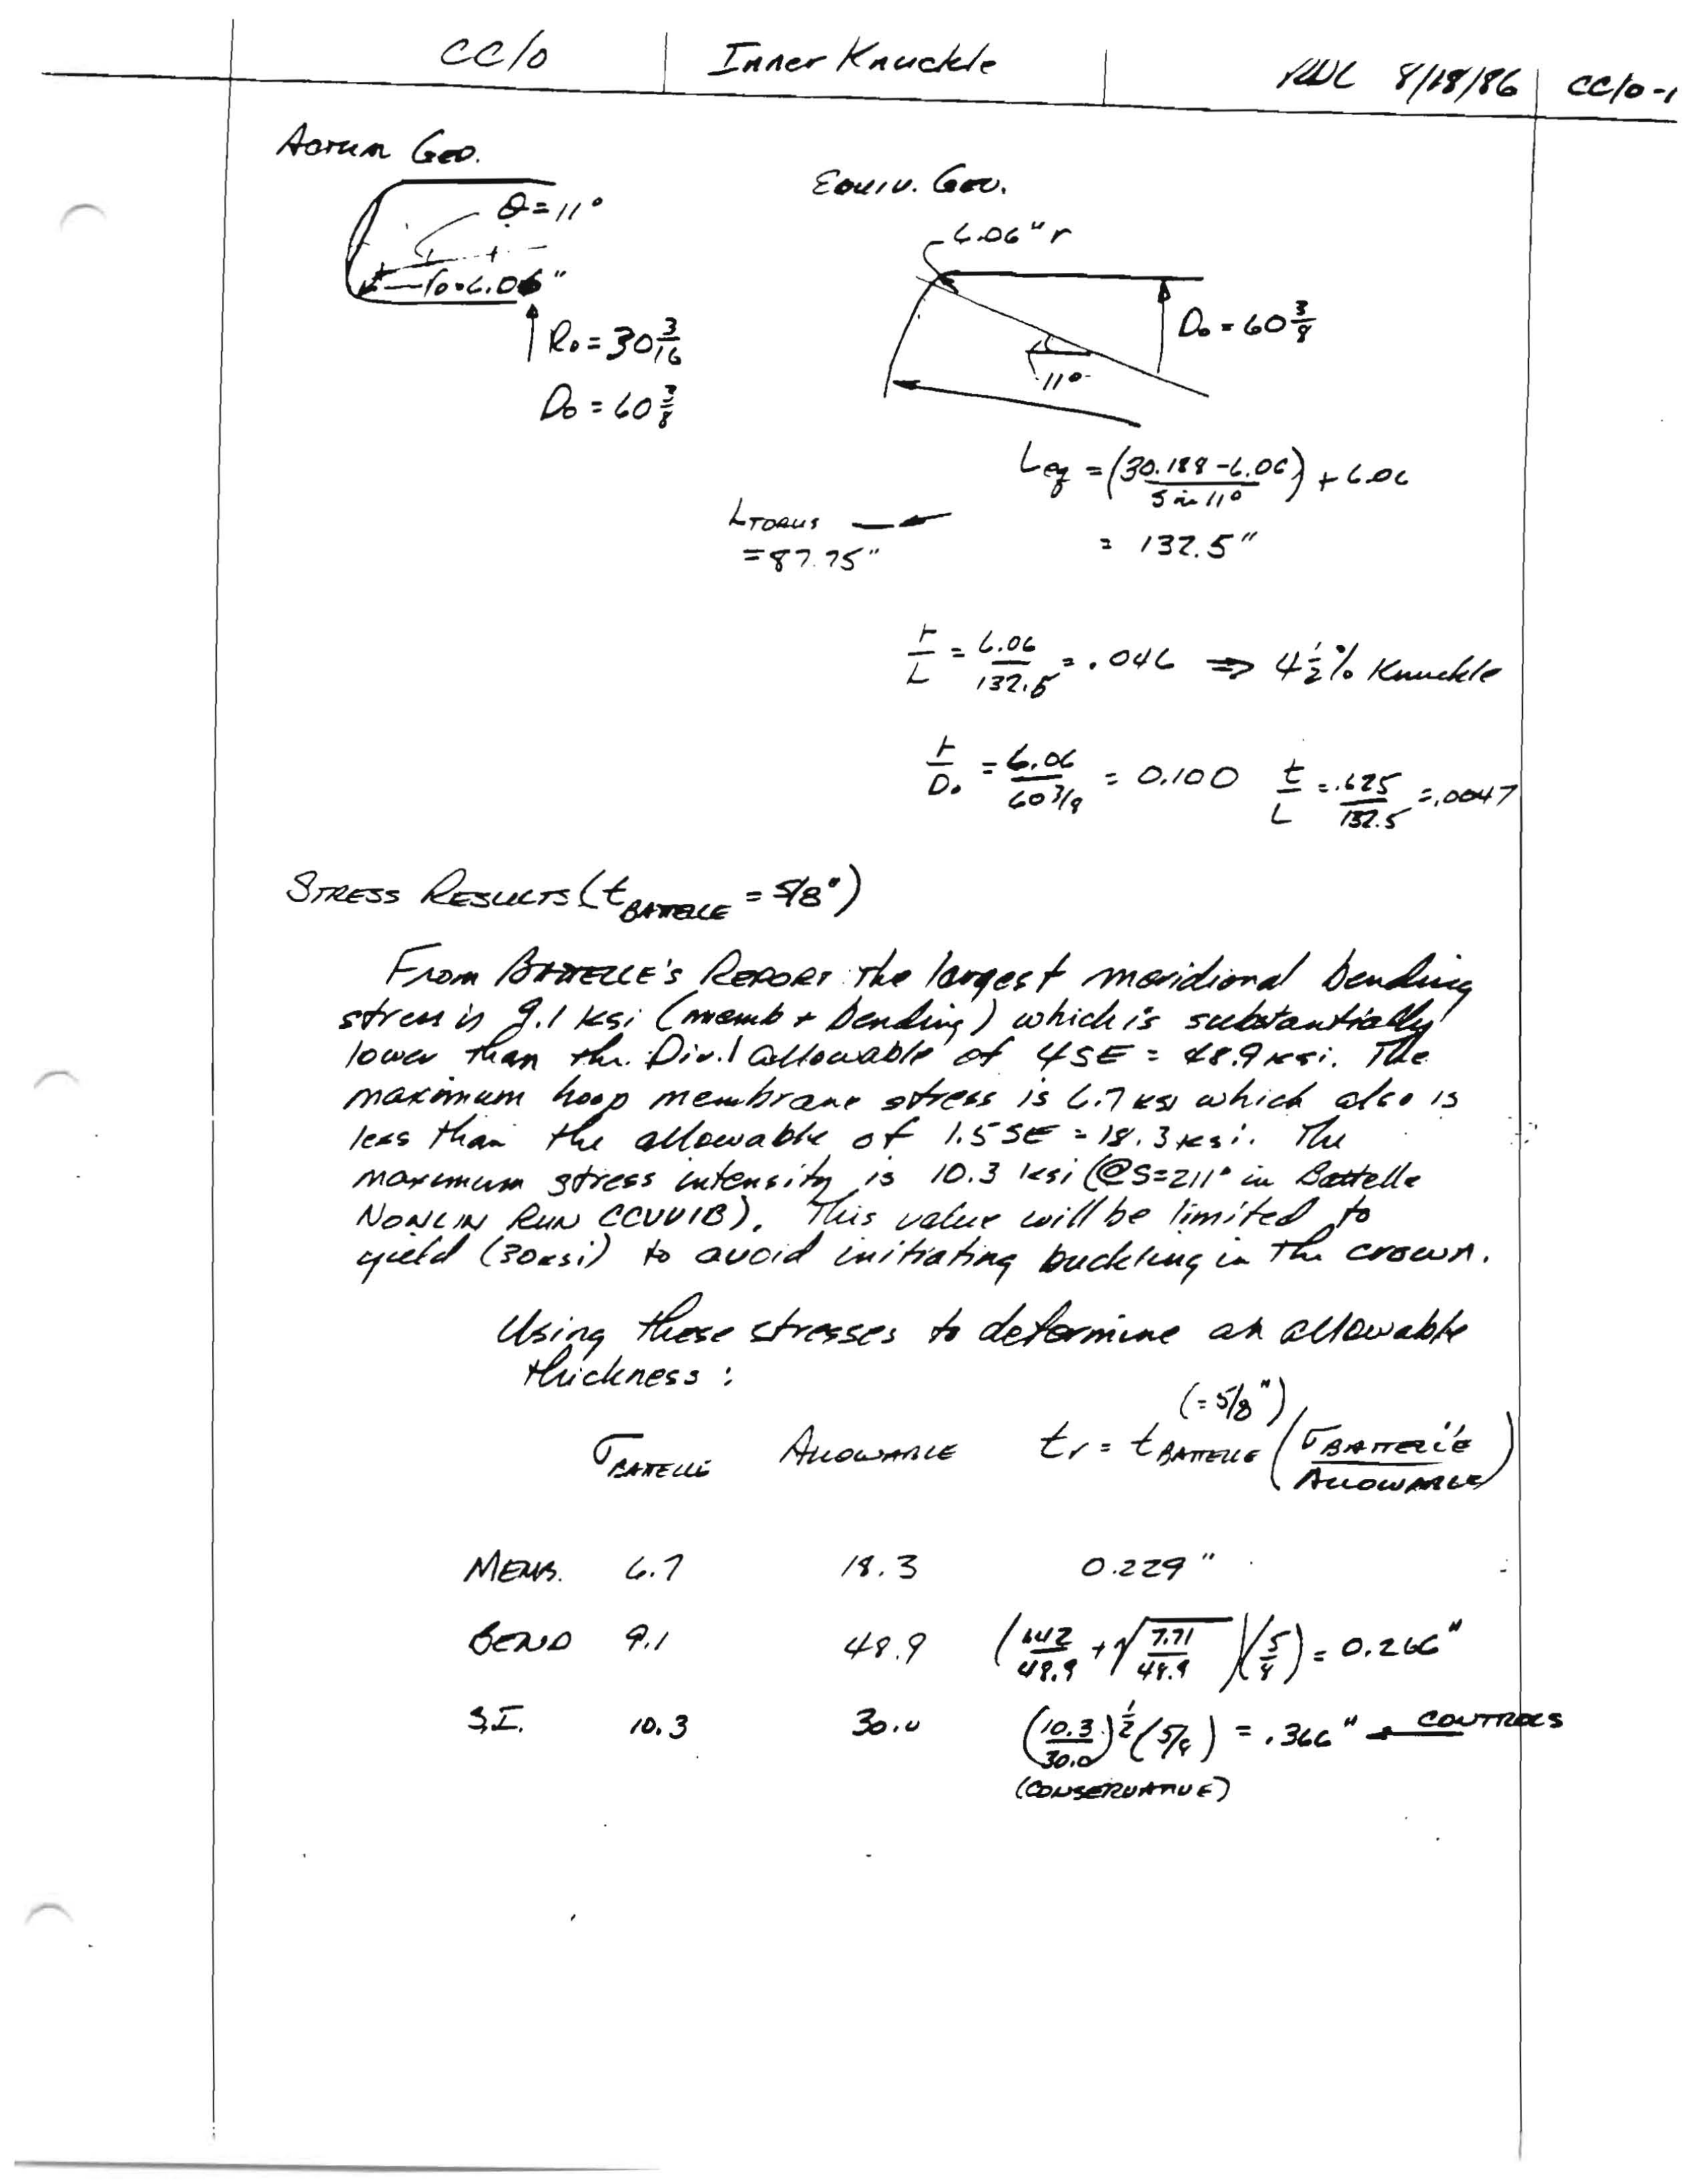 CC10 Inner Knuckle 8/18/86 CC10-1
Actual Geo.
Equiv. Geo.
θ=11°
ro=6.06"
Ro = 30 3/16
Do = 60 3/8
6.06" r
Do = 60 3/8
11°
Leq = (30.188-6.06 / Sin 11°) + 6.06
= 132.5"
LTORUS
= 87.75"
r/L = 6.06/132.5 = .046 ⇒ 4 1/2 % Knuckle
r/Do = 6.06/60 3/8 = 0.100 t/L = .625/132.5 = .0047
STRESS RESULTS (tBATTELLE = 5/8")
From BATTELLE'S REPORT: the largest meridional bending
stress is 9.1 ksi (memb + bending) which is substantially
lower than the Div.1 allowable of 4SE = 48.9 ksi. The
maximum hoop membrane stress is 6.7 ksi which also is
less than the allowable of 1.5SE = 18.3 ksi. The
maximum stress intensity is 10.3 ksi (@S=211° in Battelle
NONLIN RUN CCUV1B). This value will be limited to
yield (30 ksi) to avoid initiating buckling in the crown.
Using these stresses to determine an allowable
thickness:
(=5/8")
σBATTELLE ALLOWABLE tr = tBATTELLE (σBATTELLE / ALLOWABLE)
MEMB. 6.7 18.3 0.229"
BEND 9.1 48.9 (1.42/48.9 + √7.71/48.9)(5/8) = 0.266"
S.I. 10.3 30.0 (10.3/30.0)^1/2 (5/8) = .366" ← CONTROLS
(CONSERVATIVE)